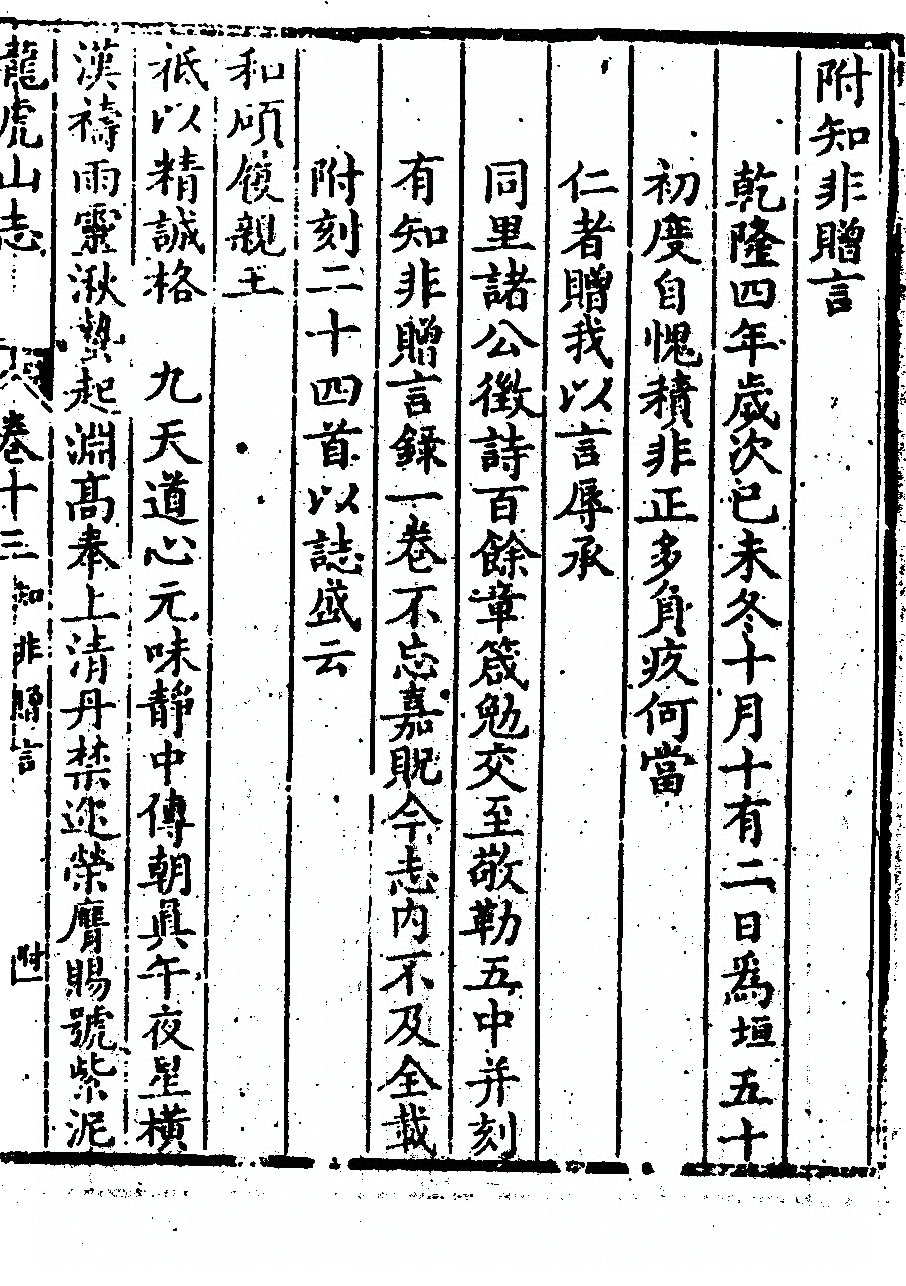 附知非贈言
乾隆四年歲次已未冬十月十有二日爲垣五十
初度自愧積非正多負疚何當
仁者贈我以言辱承
同里諸公徵詩百餘章箴勉交至敬勒五中并刻
有知非贈言錄一卷不忘嘉貺今志內不及全載
附刻二十四首以誌盛云
和碩履親王
祗以精誠格 九天道心元味靜中傳朝眞午夜星橫
漢禱雨靈湫蟄起淵高奉上清丹禁邇榮膺賜號紫泥
龍虎山志 卷十三 知非贈言 附一